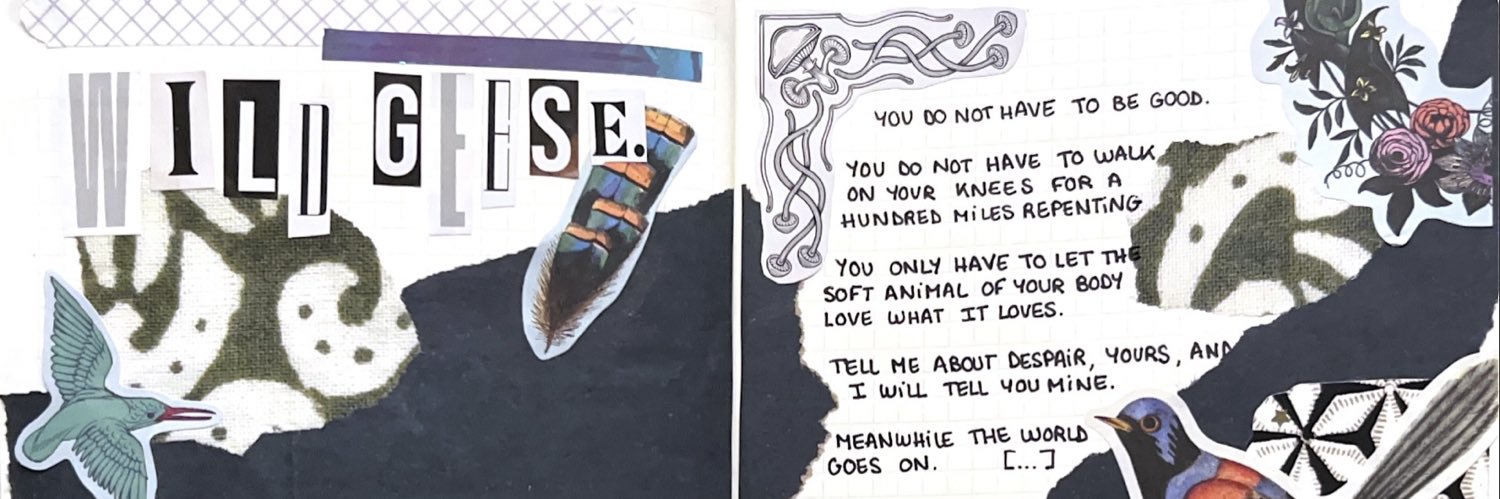 WILD GEESE.
YOU DO NOT HAVE TO BE GOOD.
YOU DO NOT HAVE TO WALK
ON YOUR KNEES FOR A
HUNDRED MILES REPENTING
YOU ONLY HAVE TO LET THE
SOFT ANIMAL OF YOUR BODY
LOVE WHAT IT LOVES.
TELL ME ABOUT DESPAIR, YOURS, AND
I WILL TELL YOU MINE.
MEANWHILE THE WORLD
GOES ON. [...]